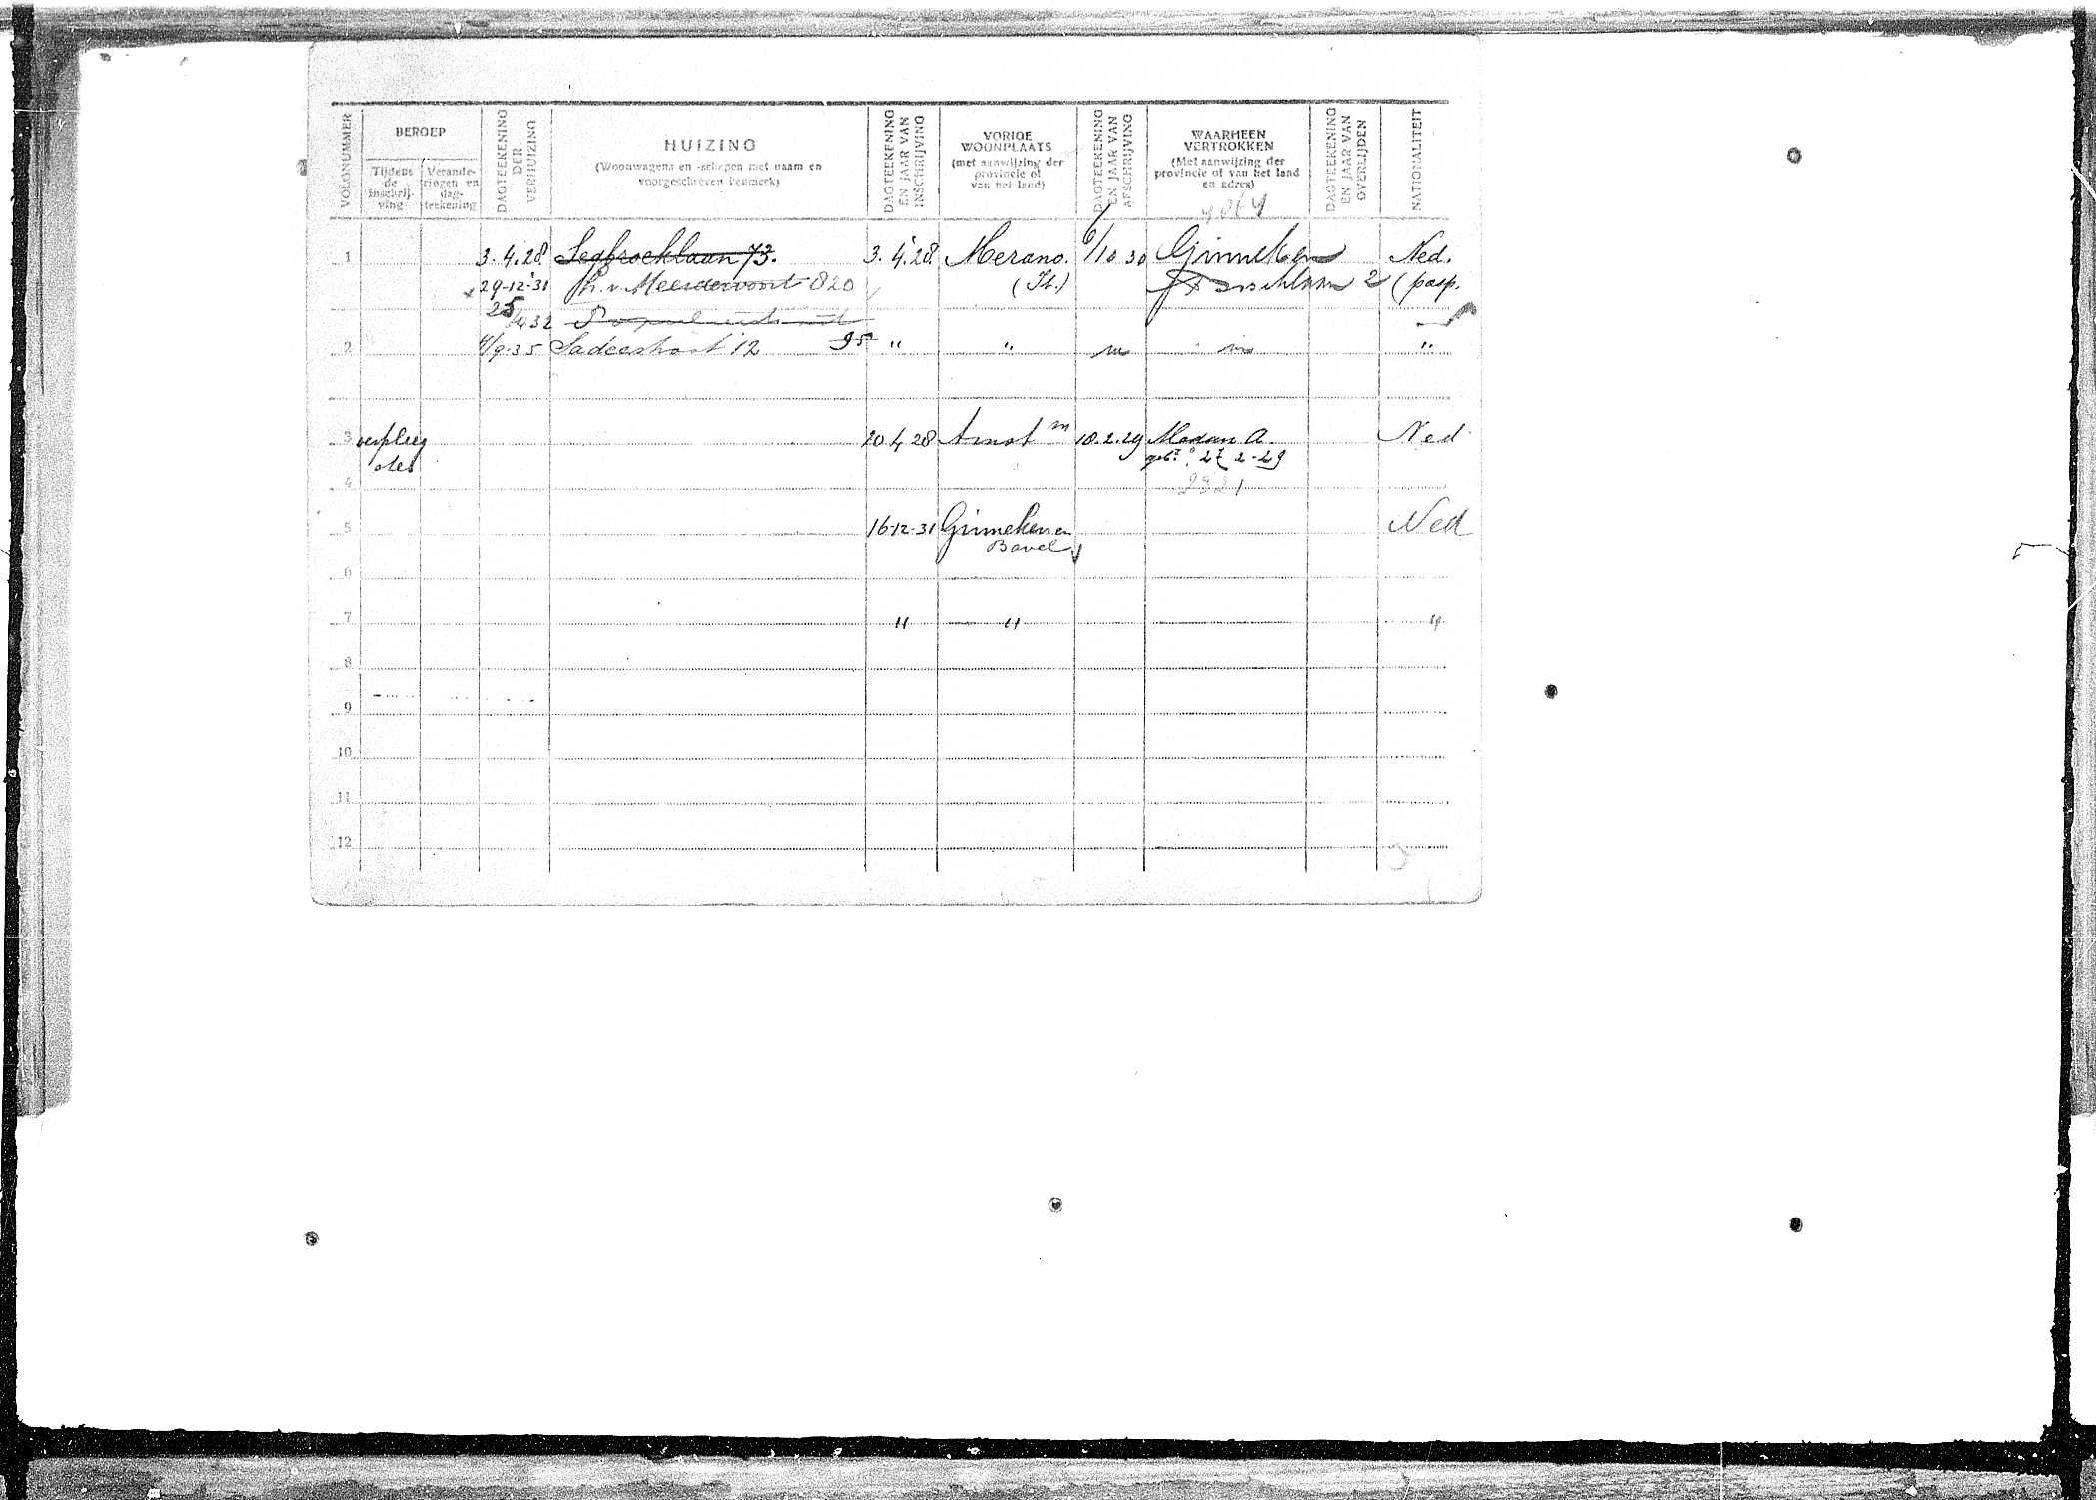 VOLGNUMMER
BEROEP
Tijdens de inschrij-ving
Verande-ringen en dag-teekening
DAGTEEKENING DER VERHUIZING
HUIZING
(Woonwagens en -schepen met naam en
voorgeschreven kenmerk)
DAGTEEKENING EN JAAR VAN INSCHRIJVING
VORIGE
WOONPLAATS
(met aanwijzing der
provincie of
van het land)
DAGTEEKENING EN JAAR VAN AFSCHRIJVING
WAARHEEN
VERTROKKEN
(Met aanwijzing der
provincie of van het land
en adres)
DAGTEEKENING EN JAAR VAN OVERLIJDEN
NATIONALITEIT
1 3.4.28. Segbroeklaan 73. 3.4.28. Merano. 6/10 30 Ginneken Ned.
29-12-31 Ph. v. Meerdervoort 820 (It.) 2 (pasp.
25/4 32
2 4/9.35 Sadeestraat 12 95 " " "
3 verpleeg 20 4 28 Amst m 18.2.29 Ned
ster 2-29
4 2921
5 16-12-31 Ginneken en Ned
Bavel
6
7 " " "
8
9
10
11
12